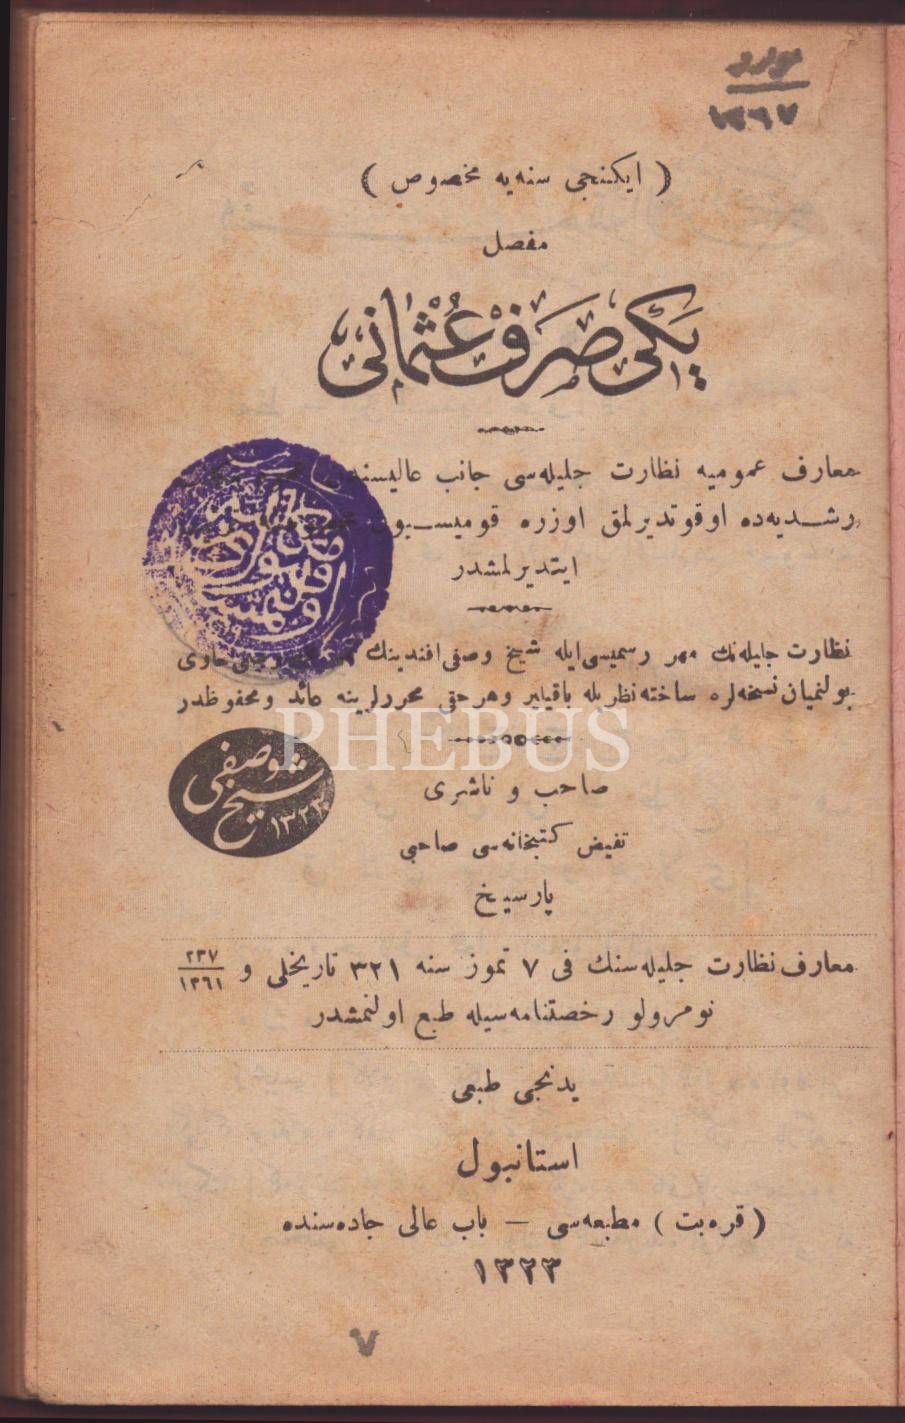 ١٣٦٧
( ایكنجی سنه‌یه مخصوص )
مفصل
یكی صرف عثمانی
معارف عمومیه نظارت جلیله‌سی جانب عالیسندن
رشدیه‌ده اوقوتدیرلمق اوزره قومیسیون
ایتدیرلمشدر
نظارت جلیله‌نك مهر رسمیسی ایله شیخ وصفی افندینك حاوی
بولنمیان نسخه‌لره ساخته نظریله باقیلیر وهر حقی محررلرینه عائد ومحفوظدر
PHEBUS
شیخ وصفی
١٣٢٣
صاحب و ناشری
تفیض كتبخانه‌سی صاحبی
پارسیخ
معارف نظارت جلیله‌سنك فی ٧ تموز سنه ٣٢١ تاریخلی و ٢٣٧/١٣٦١
نومرولو رخصتنامه‌سیله طبع اولنمشدر
یدنجی طبعی
استانبول
( قره‌بت ) مطبعه‌سی — باب عالی جاده‌سنده
١٣٢٣
٧